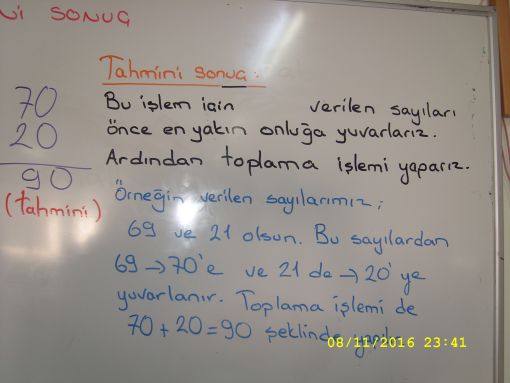 Nİ SONUÇ
70
20
90
(tahmini)
Tahmini sonuç:
Bu işlem için verilen sayıları
önce en yakın onluğa yuvarlarız.
Ardından toplama işlemi yaparız.
Örneğin verilen sayılarımız;
69 ve 21 olsun. Bu sayılardan
69 → 70'e ve 21 de → 20' ye
yuvarlanır. Toplama işlemi de
70 + 20 = 90 şeklinde
08/11/2016 23:41